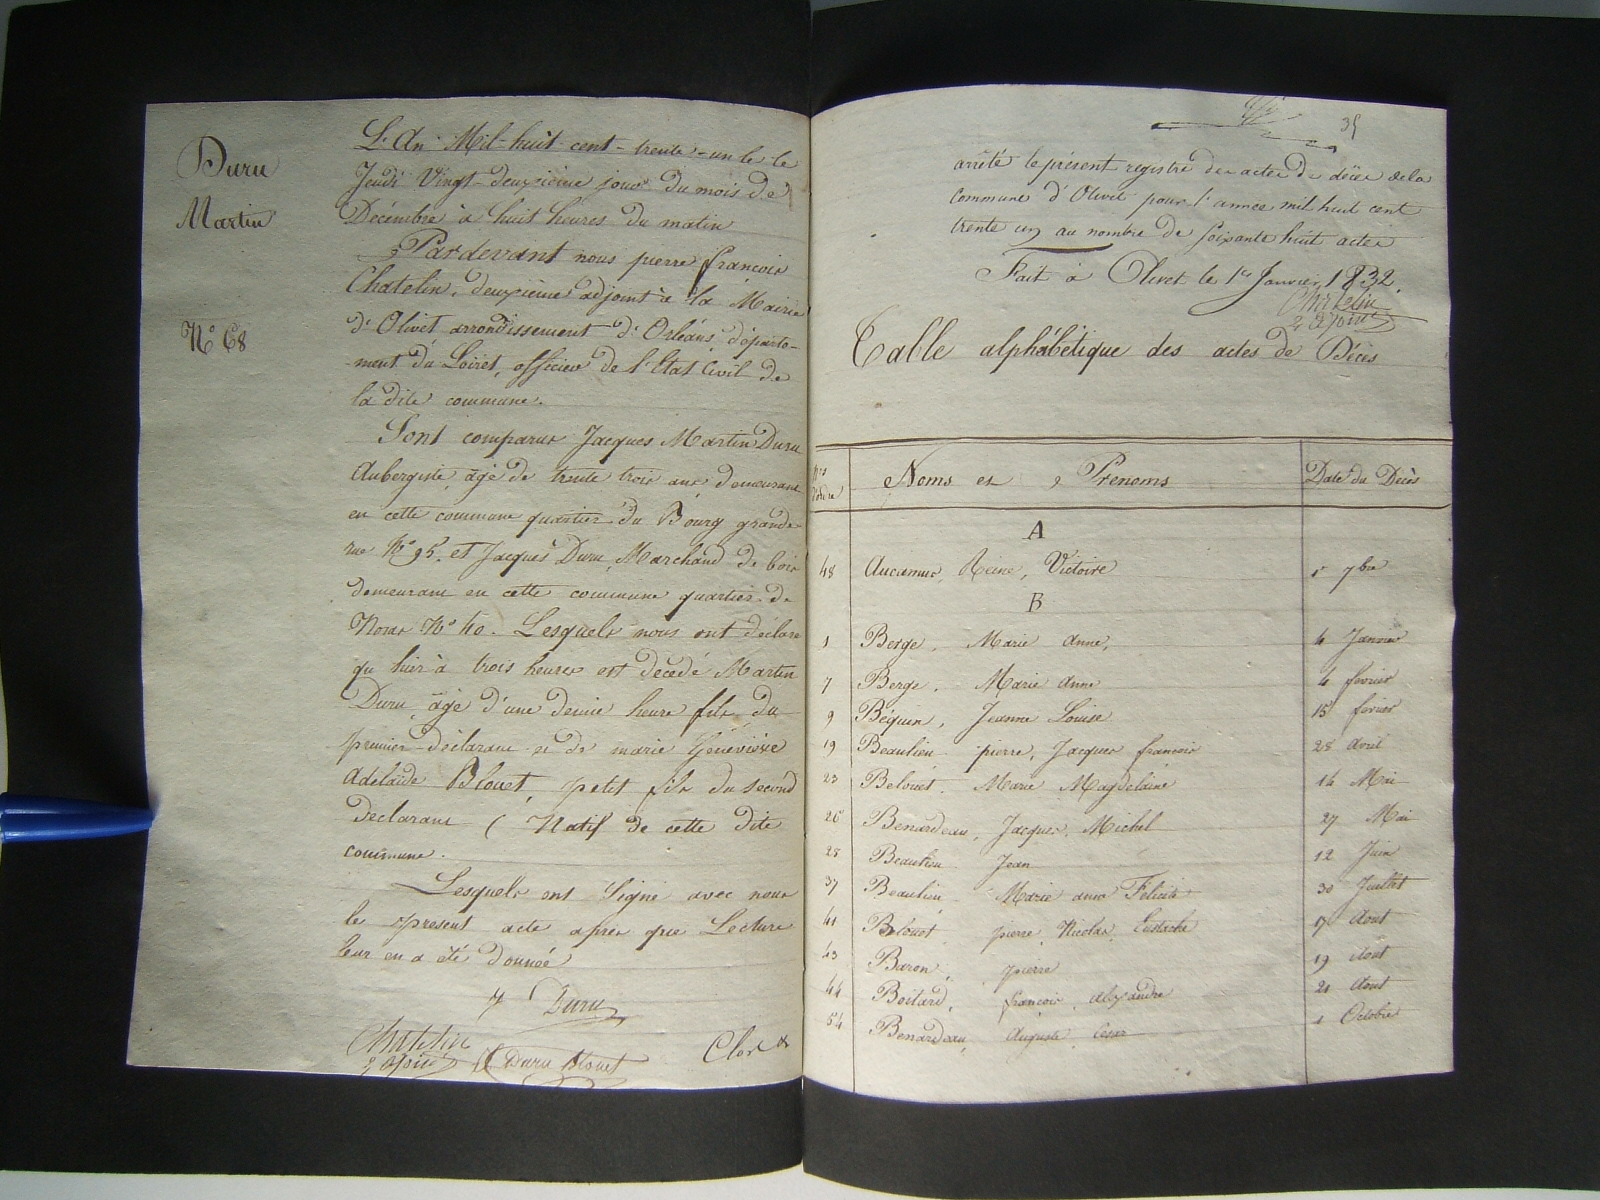 Duru
Martin
N° 68
L'An Mil-huit-cent-trente-un le le
Jeudi Vingt-deuxième jour du mois de
Décembre à huit heures du matin
Pardevant nous pierre françois
Chatelin, deuxième adjoint à la Mairie
d'Olivet arrondissement d'Orléans, départe-
ment du Loiret, officier de l'Etat Civil de
la dite commune.
Sont comparus Jacques Martin Duru
Aubergiste, âgé de trente trois ans demeurant
en cette commune quartier du Bourg grande
rue N° 95. et Jacques Duru, Marchand de bois
demeurant en cette commune quartier de
N° 40. Lesquels nous ont déclaré
qu'hier à trois heures est décédé Martin
Duru, âgé d'une demie heure fils du
premier déclarant et de marie Geneviève
Adelaïde Blouet, petit fils du second
Déclarant ( Natif de cette dite
commune.
Lesquels ont Signé avec nous
le present acte après que Lecture
leur en a été donnée
J Duru
Chatelin
2 adjoint
Duru Blouet
Clos
35
arrêté le présent registre des actes de décès de la
Commune d'Olivet pour l'année mil huit cent
trente un au nombre de soixante huit actes
Fait à Olivet le 1er Janvier 1832.
Chatelin
2 adjoint
Table alphabétique des actes de Décès
Nos d'ordre Noms et Prenoms Date du Décès
A
48 Aucamus, Reine, Victoire 5 7bre
B
1 Berge, Marie Anne, 4 Janvier
7 Berge, Marie Anne 4 fevrier
9 Béquin, Jeanne Louise 15 fevrier
19 Beaulieu pierre, Jacques françois 28 Avril
23 Belouet, Marie Magdelaine 14 Mai
26 Benardeau, Jacques, Michel 27 Mai
28 Beaulieu Jean 12 Juin
37 Beaulieu Marie anne Felicité 30 Juillet
41 Blouet pierre, Nicolas, Eustache 17 Aout
43 Baron, pierre 19 Aout
44 Boitard, françois alexandre 21 Aout
54 Benardeau, Auguste Cesar 1 Octobre